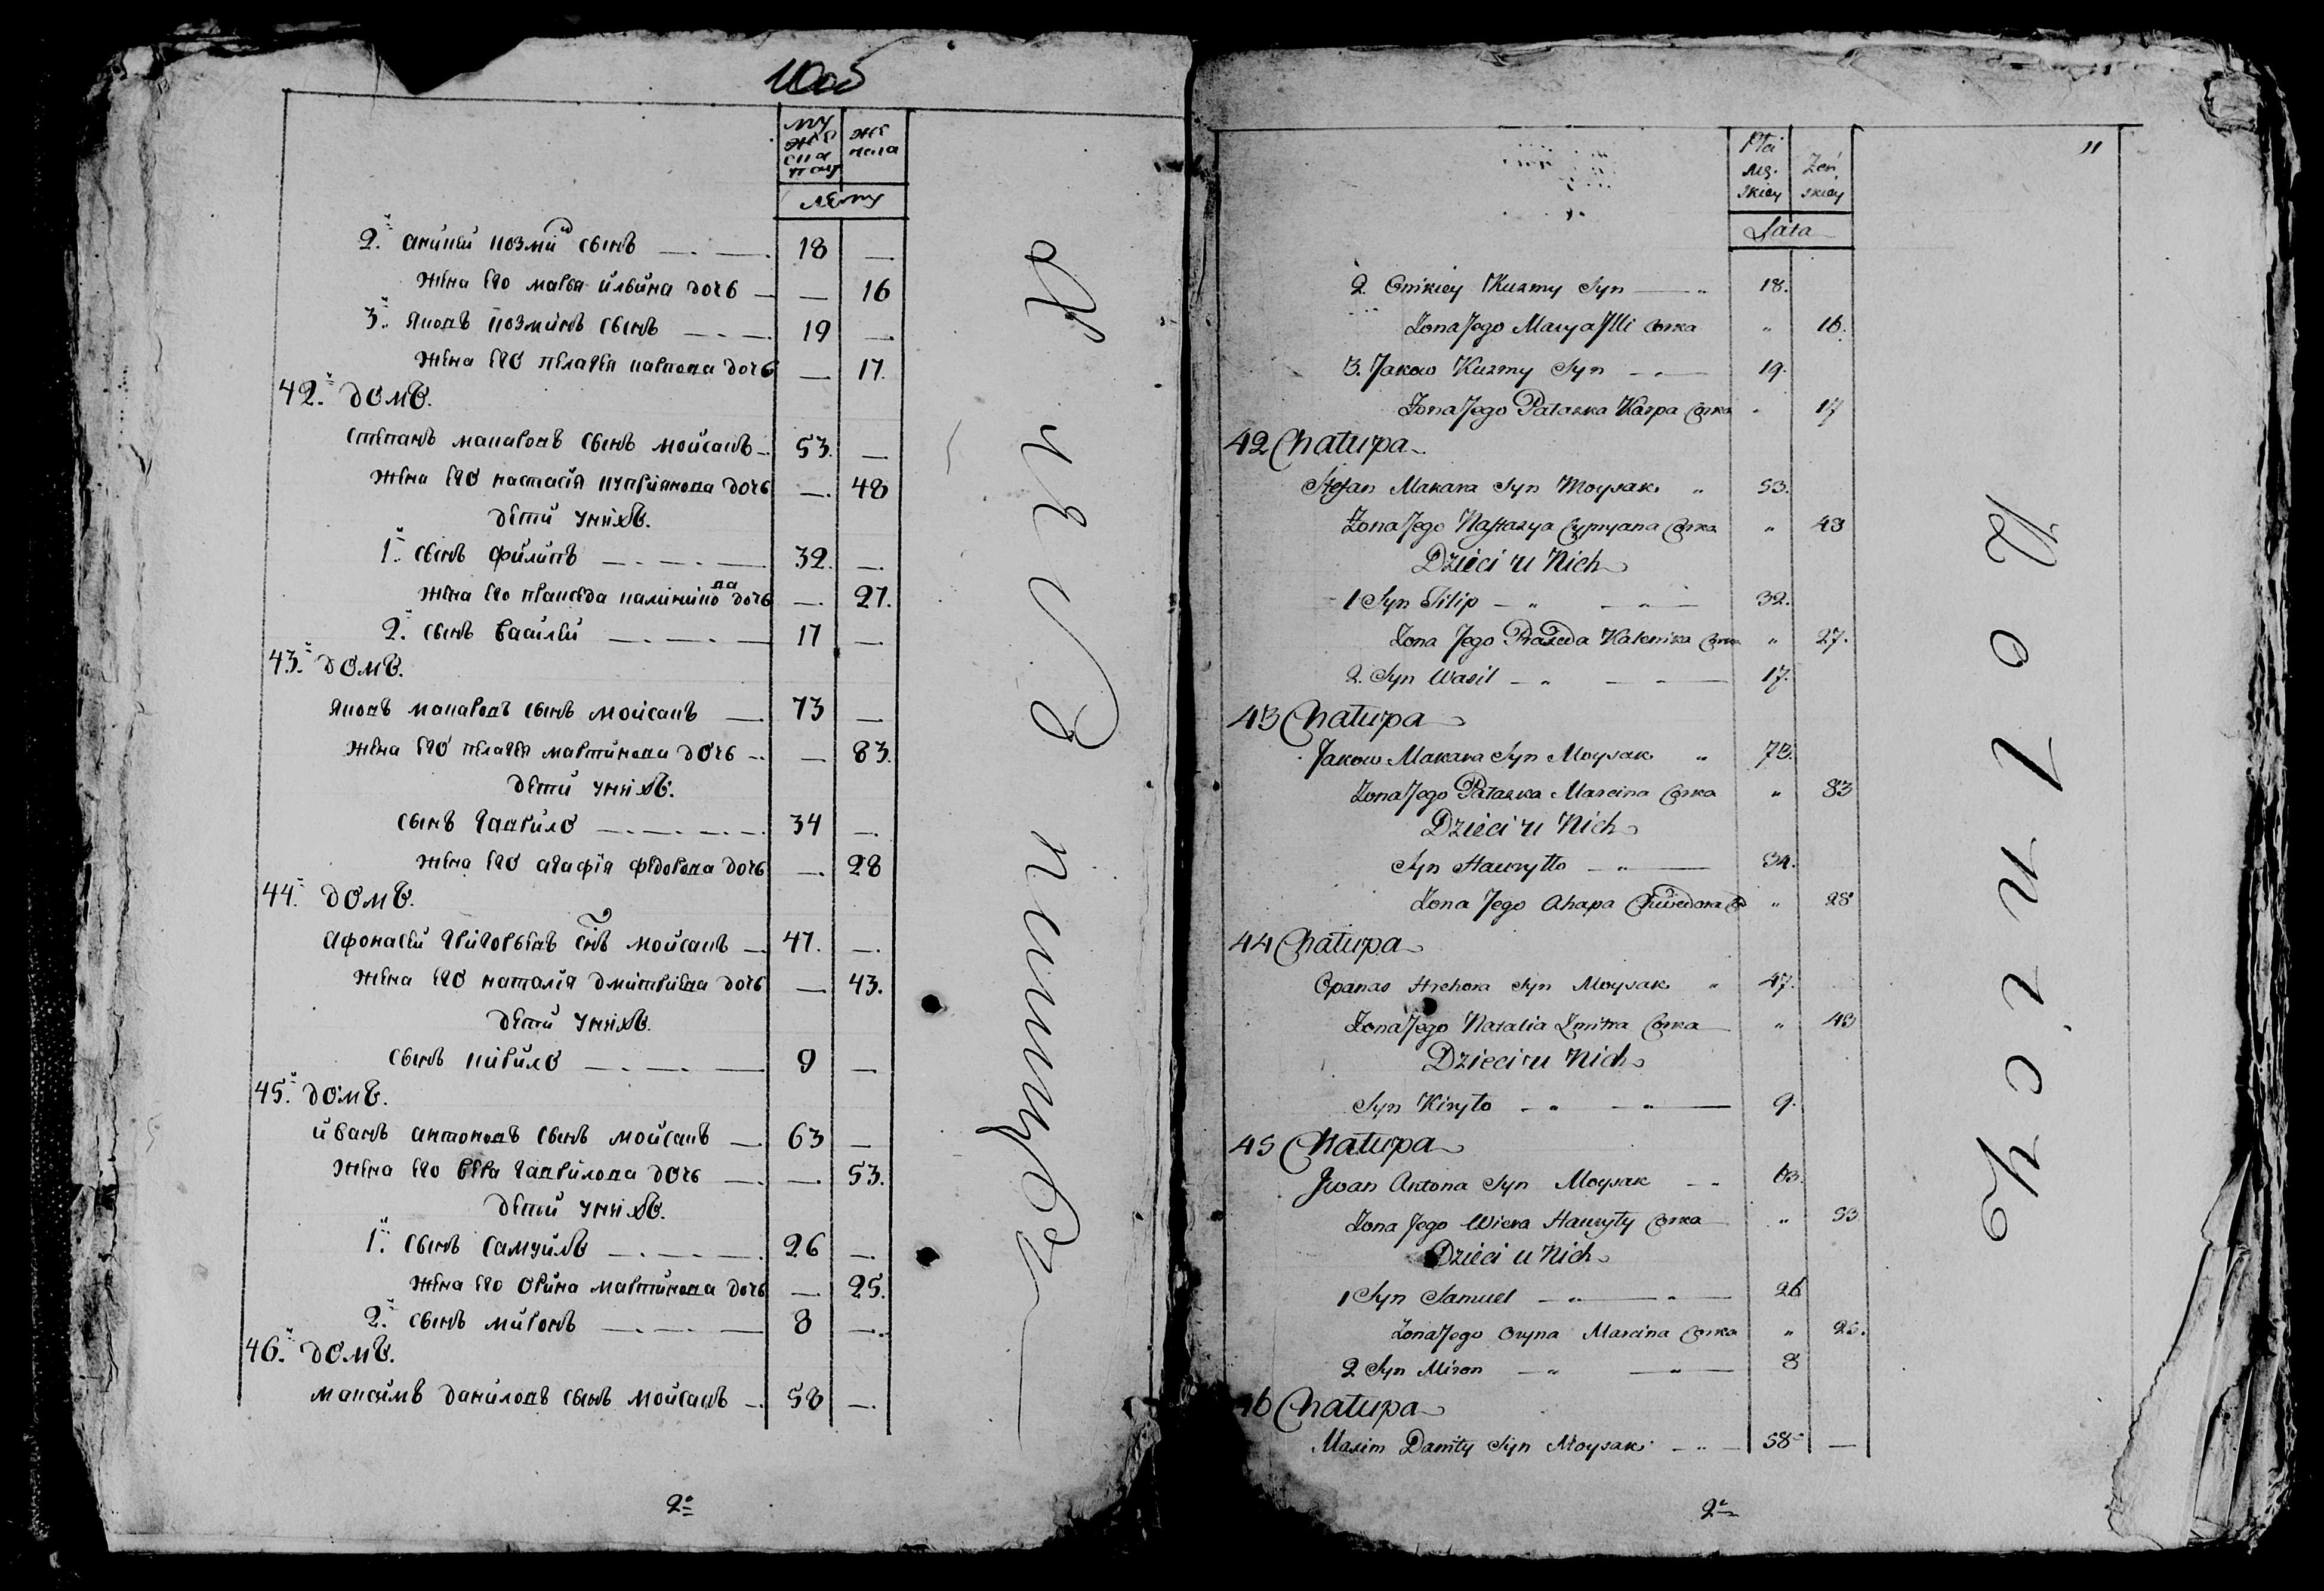 10об
му
же
ска
полу
же
нска
лета
2.й аникей козмин сынъ — 18 —
жена его марья ильина дочь — 16
3.й яковъ козминъ сынъ — 19 —
жена его пелагея карпова дочь — 17.
42.й домъ.
степанъ макаровъ сынъ мойсакъ — 53. —
жена его настасiя куприянова дочь — 48
дети унихъ.
1.й сынъ филипъ — 32. —
жена его пракседа калиникова дочь — 27.
2.й сынъ василей — 17 —
43.й домъ.
яковъ макаровъ сынъ мойсакъ — 73 —
жена его пелагея мартинова дочь — 83.
дети унихъ.
сынъ гаврило — 34 —
жена его агафiя федорова дочь — 28
44.й домъ.
афонасей григорьевъ снъ мойсакъ — 47. —
жена его наталiя дмитриева дочь — 43.
дети унихъ.
сынъ кирило — 9 —
45.й домъ.
иванъ антоновъ сынъ мойсакъ — 63 —
жена его вера гаврилова дочь — 53.
дети унихъ.
1.й сынъ самуилъ — 26 —
жена его орина мартинова дочь — 25.
2.й сынъ миронъ — 8 —
46.й домъ.
максимъ даниловъ сынъ мойсакъ — 58 —
2е
11
Płci
Męz.
skiey
Żeń
skiey
Lata
2. Onikiey Kuzmy Syn — 18.
Zona Jego Marya Illi Corka " 16.
3. Jakow Kuzmy Syn — 19.
Zona Jego Pałazka Karpa Corka " 17
42 Chałupa
Stefan Makara Syn Moysak " 53.
Zona Jego Nastazya Cypryana Corka " 48
Dzieci u Nich
1 Syn Filip — " — 32.
Zona Jego Praxeda Kalenika Corka " 27.
2. Syn Wasil — " — 17.
43 Chałupa
Jakow Makara Syn Moysak " 73.
Zona Jego Pałazka Marcina Corka " 83
Dzieci u Nich
Syn Hawryłło — " — 34.
Zona Jego Ahapa Chwiedora C " 28
44 Chałupa
Opanas Hrehora Syn Moysak " 47.
Zona Jego Natalia Dmitra Corka " 43
Dzieci u Nich
Syn Kiryło — " — 9.
45 Chałupa
Jwan Antona Syn Moysak — 63.
Zona Jego Wiera Hawryły Corka " 53
Dzieci u Nich
1 Syn Samuel — " — 26
Zona Jego Oryna Marcina Corka " 25.
2 Syn Miron — " — 8
46 Chałupa
Maxim Daniły Syn Moysak — 58 —
2e
Rolnicy